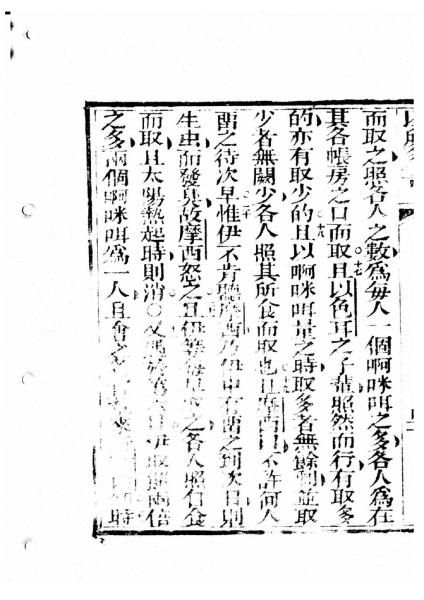 而取之照各人之數爲每人一個啊咪咡之多各人爲在
其各帳房之口而取且以色耳之子輩照然而行有取多
的亦有取少的且以啊咪咡量之時取多者無餘剩並取
少者無闕少各人照其所食而取也且摩西曰不許何人
畱之待次早惟伊不肯聽摩西乃伊中有畱之到次日則
生虫而發臭故摩西怒之且伊等每早取之各人照自食
而取且太陽熱起時則消○又遇於第六日伊取餅兩倍
之多兩個啊咪咡爲一人且會
時